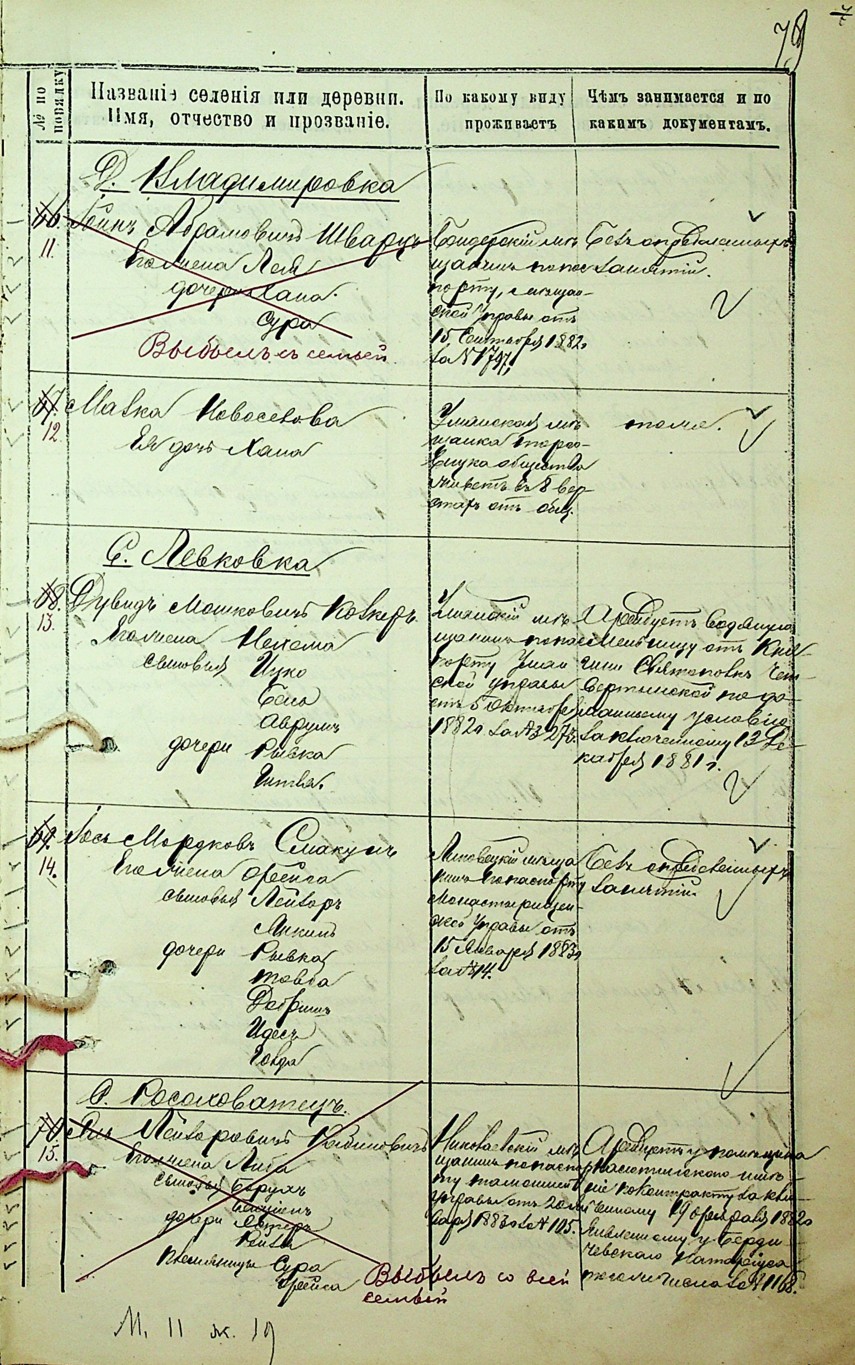 79
№ по порядку
Названіе селенія или деревни.
Имя, отчество и прозваніе.
По какому виду
проживаетъ
Чѣмъ занимается и по
какимъ документамъ.
Д. Владимировка
66
11.
Абрамовичъ Шварцъ
Его жена Лея
дочери Хана
Сура
Выбылъ съ семьей
мѣ-
щанинъ по пас-
порту, мѣщан-
ской Управы отъ
15 Сентября 1882 г.
за №
Безъ опредѣленныхъ
занятій.
67
12
Новоселова
Ея дочь Хана
Уманская мѣ-
щанка
общества
живетъ въ 8 вер-
стахъ отъ
тоже.
С. Левковка
68.
13.
Дувидъ Мошковичъ
Его жена Нехама
сыновья Ицко
Аврумъ
дочери Рывка
Гитля.
Уманскій мѣ-
щанинъ по пас-
порту Уман-
ской управы
отъ 5 Октября
1882 г за № 273.
Арендуетъ водяную
мельницу отъ Кня-
гини Святополкъ Чет-
вертинской по до-
машнему условію
заключенному 13 Де-
кабря 1881 г.
69.
14.
Мордковъ
Его жена Фейга
сыновья Лейзоръ
дочери Рывка
Товба
Голда
Липовецкій мѣща-
нинъ по паспорту
Монастырищен-
ской Управы отъ
15 Января 1883 г
за № 14.
Безъ опредѣленныхъ
занятій.
С. Росоховатецъ.
70.
15.
Лейзоровичъ Рабиновичъ
Его жена Либа
сыновья Борухъ
дочери Эстеръ
Рейза
племянницы Сура
Фрейга
Выбылъ со всей
семьей
Николаевскій мѣ-
щанинъ по паспор-
ту тамошней
управы отъ 20 Ян-
варя 1883 г за № 105.
Арендуетъ у помѣщика
имѣ-
ніе по контракту заклю-
ченному 19 февраля 1882 г
явленному у Берди-
чевскаго Нотаріуса
того же числа за № 1168.
М. 11 ж. 19